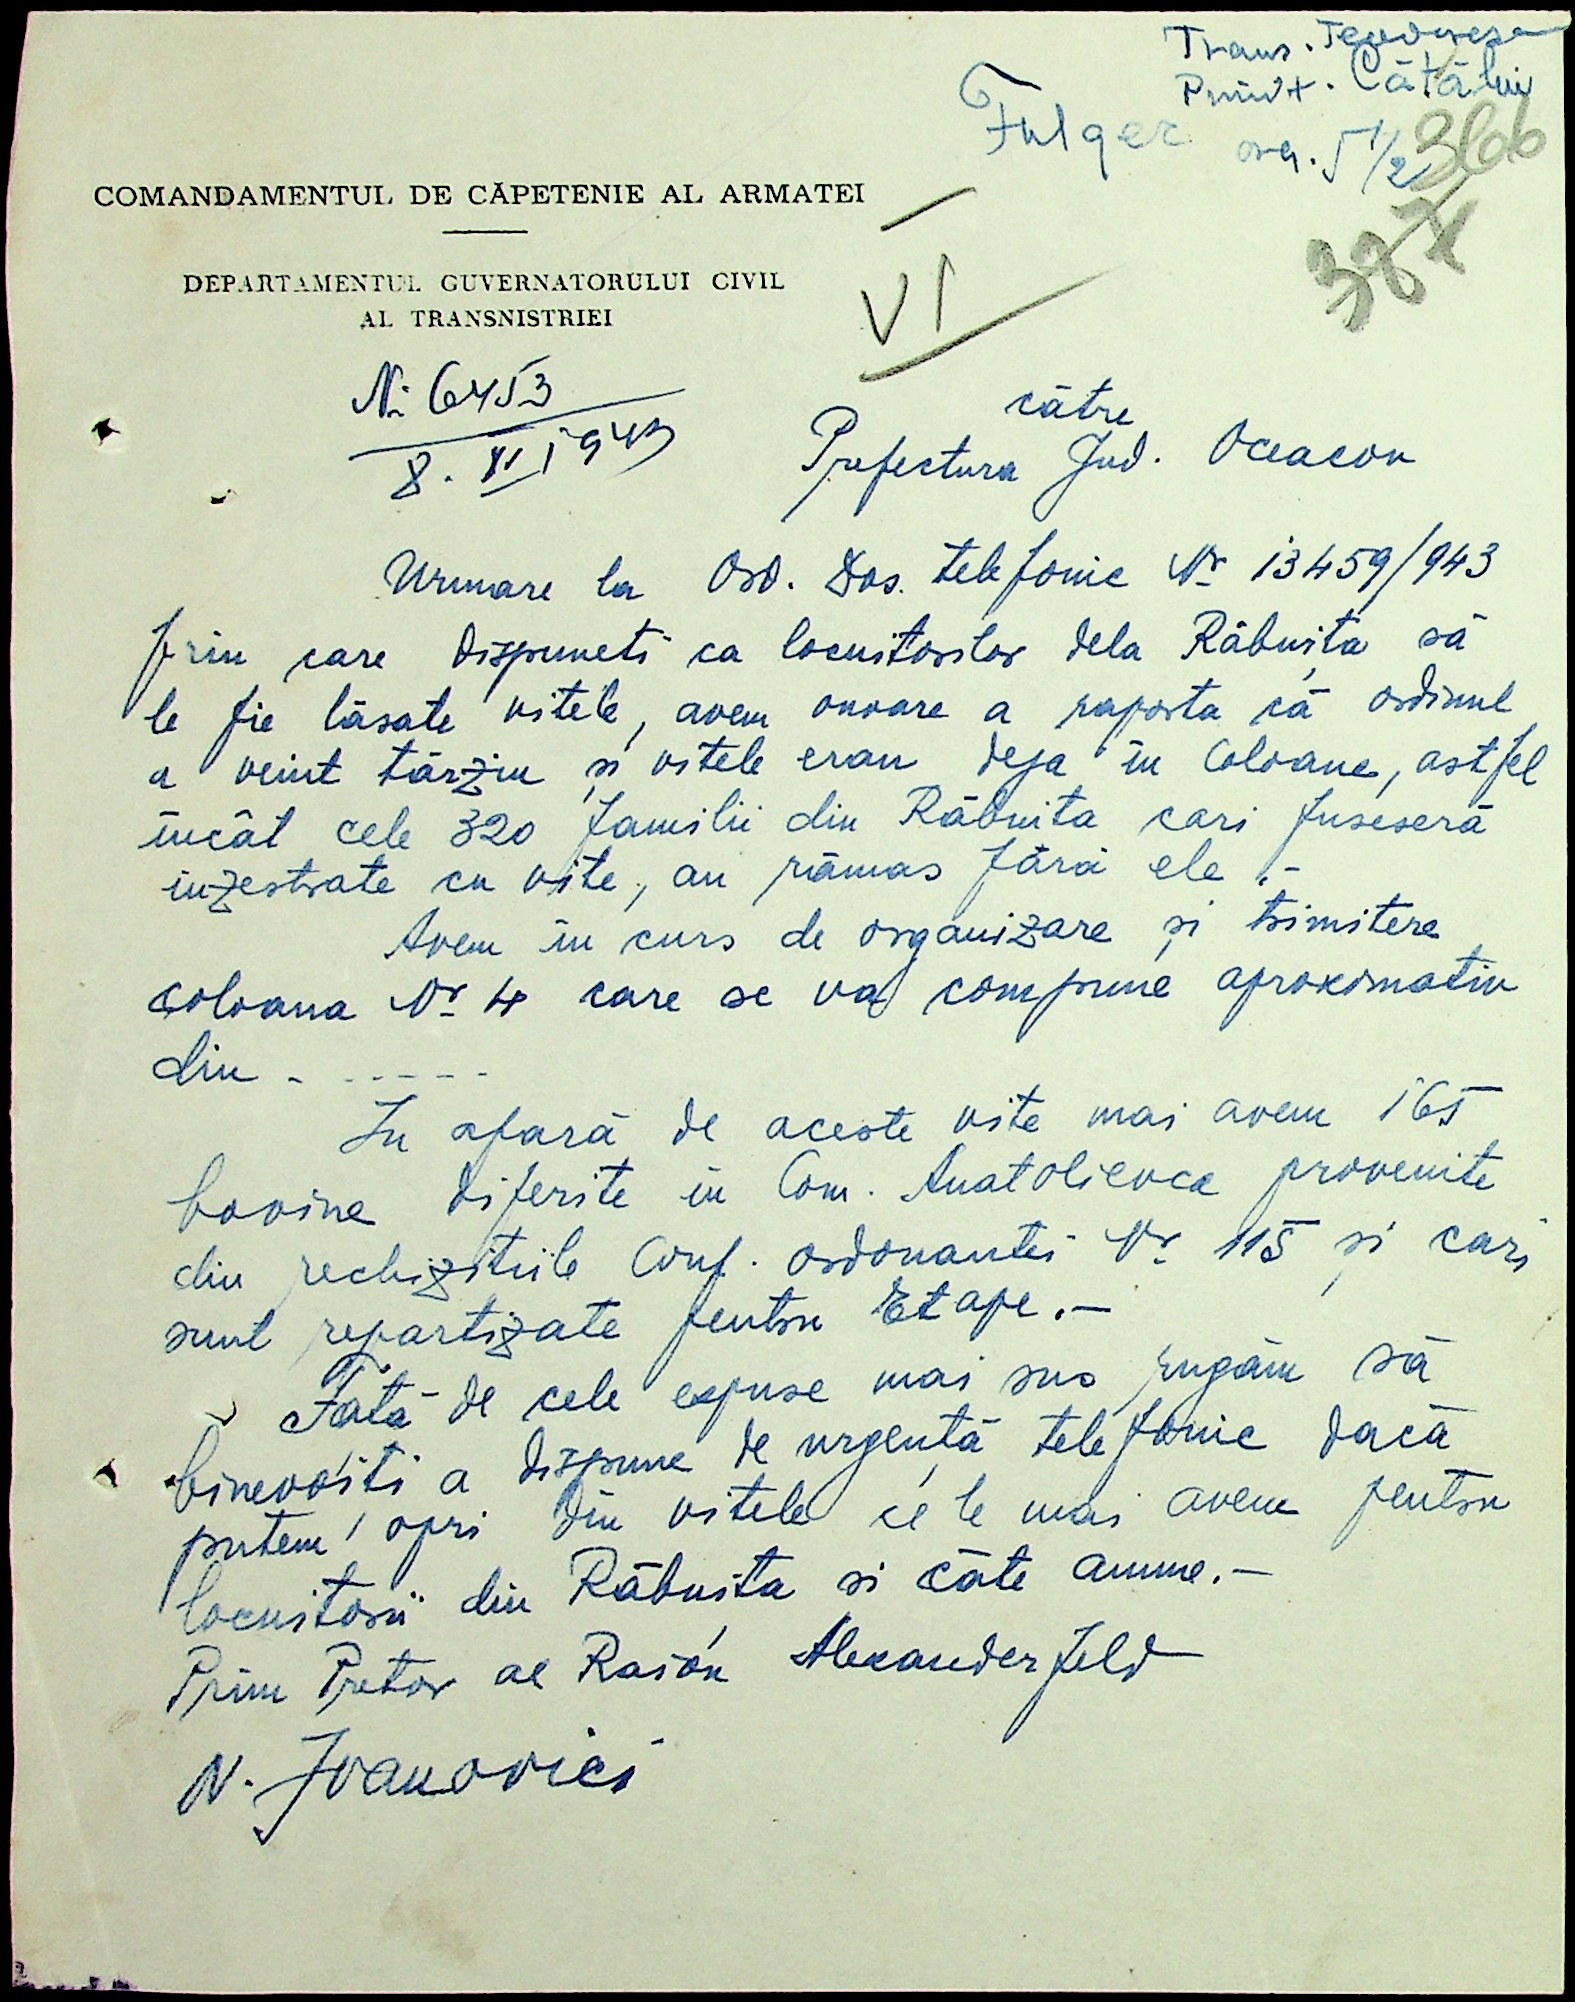 Trans. Teodorescu
Primit. Cătălin
Fulger ora. 5 1/2
366
387
COMANDAMENTUL DE CĂPETENIE AL ARMATEI
DEPARTAMENTUL GUVERNATORULUI CIVIL
AL TRANSNISTRIEI
VI
Nr. 6453
8. XI 1943
către
Prefectura Jud. Oceacov
Urmare la Ord. Dvs. telefonic Nr 13459/943
prin care dispuneti ca locuitorilor dela Râbnița să
le fie lăsate vitele, avem onoare a raporta că ordinul
a venit târziu și vitele erau deja în Coloane, astfel
încât cele 320 familii din Râbnita cari fuseseră
inzestrate cu vite, au rămas fără ele.-
Avem în curs de organizare și trimitere
coloana Nr 4 care se va compune aproximativ
din - - - - - -
In afară de aceste vite mai avem 165
bovine diferite in Com. Anatolievca provenite
din rechizitiile Conf. ordonantei Nr 115 și cari
sunt repartizate pentru Etape.-
Fată de cele expuse mai sus rugăm să
binevoiti a dispune de urgență telefonic dacă
putem opri din vitele ce le mai avem pentru
locuitorii din Râbnita si câte anume.-
Prim Pretor al Raion Alexanderfeld
N. Ivanovici